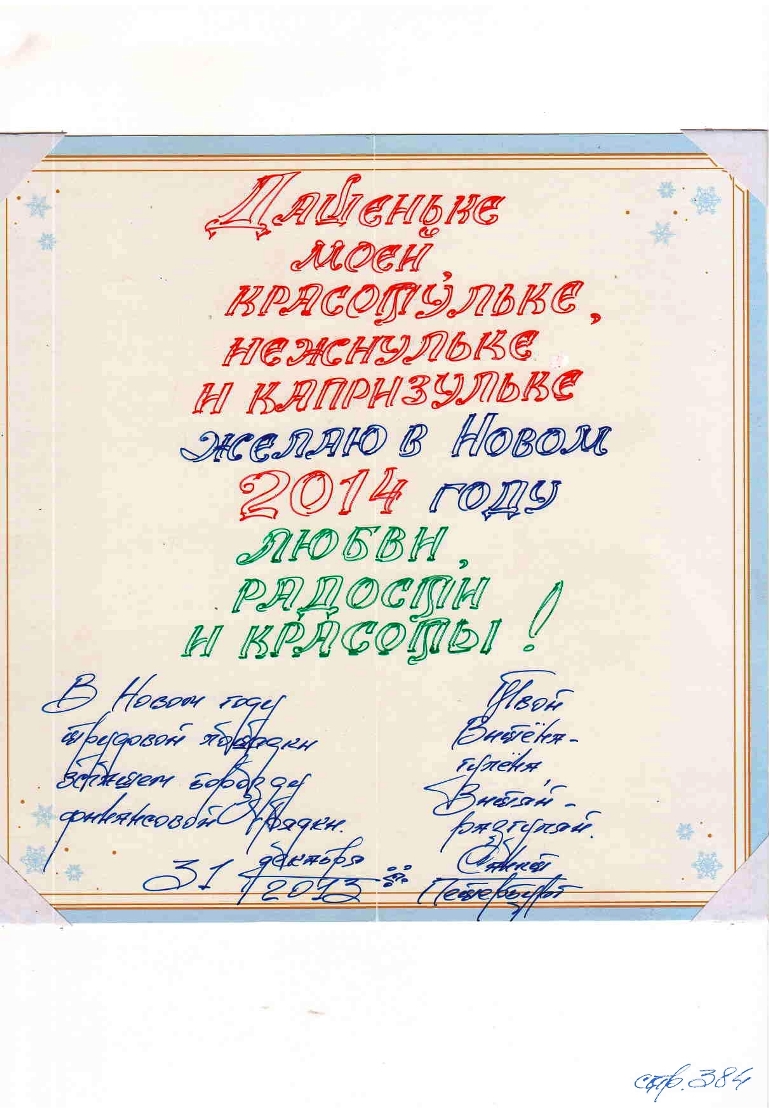 Дашеньке
моей,
красотульке,
нежнульке
и капризульке
желаю в Новом
2014 году
любви,
радости
и красоты!
В Новом году
трудовой лошадки
вспашем борозду
финансовой грядки.
31 декабря
2013
Твой
Витёна-
тулёна,
Витяй-
разгуляй.
Санкт
Петербург
стр. 384